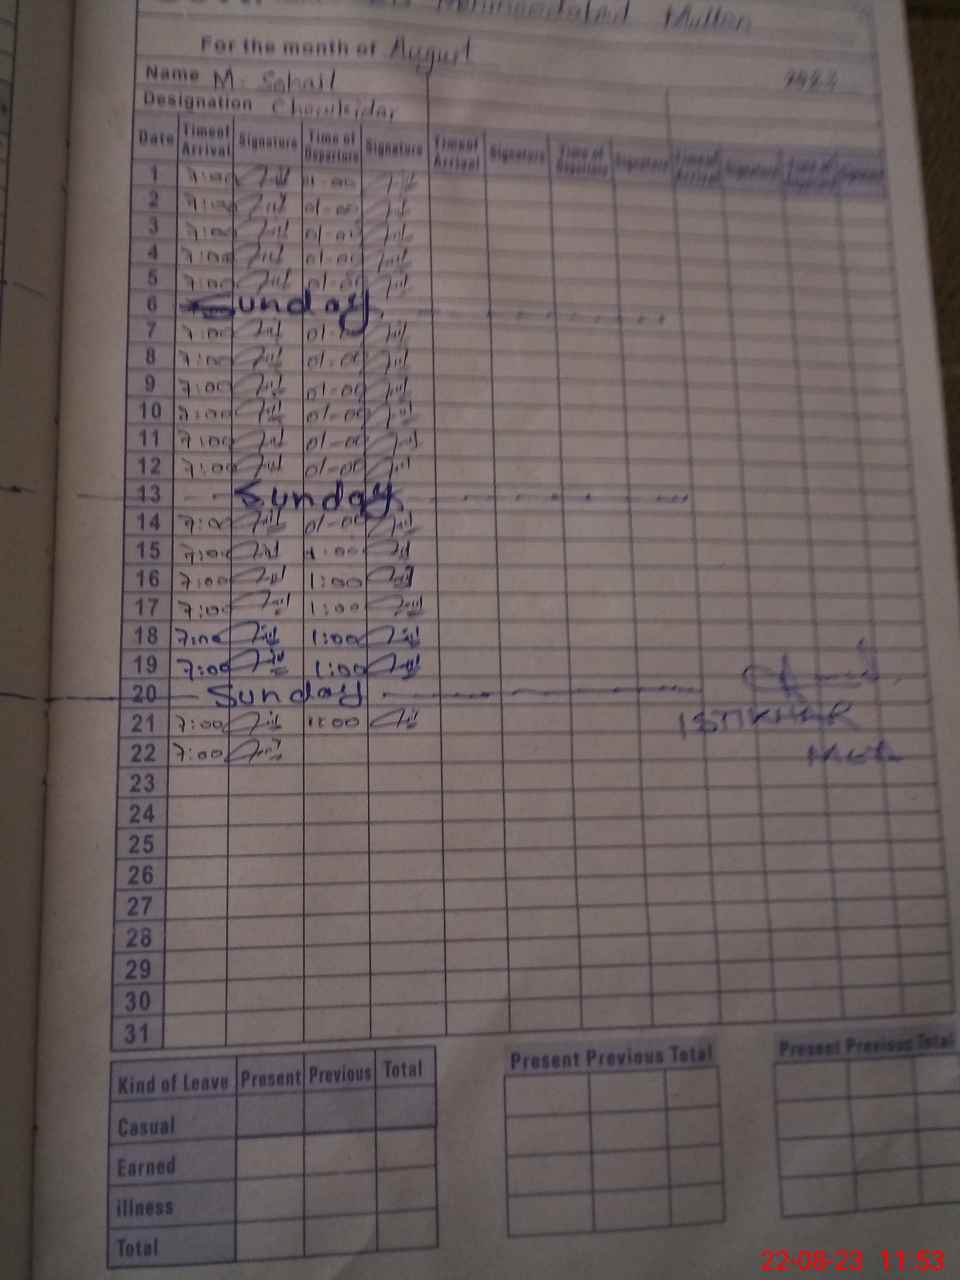 Multan
For the month of August
Name M. Sohail
Designation Chowkidar
Date Time of Arrival Signature Time of Departure Signature Time of Arrival Signature Time of Departure Signature Time of Arrival Signature Time of Departure Signature
1 7:00 01-00
2 7:00 01-00
3 7:00 01-00
4 7:00 01-00
5 7:00 01-00
6 Sunday
7 7:00
8 7:00 01-00
9 7:00 01-00
10 7:00 01-00
11 7:00 01-00
12 7:00 01-00
13 Sunday
14 7:00 01-00
15 7:00 1:00
16 7:00 1:00
17 7:00 1:00
18 7:00 1:00
19 7:00 1:00
20 Sunday
21 7:00 1:00
22 7:00
23
24
25
26
27
28
29
30
31
Kind of Leave Present Previous Total Present Previous Total Present Previous Total
Casual
Earned
illness
Total
22-08-23 11:53